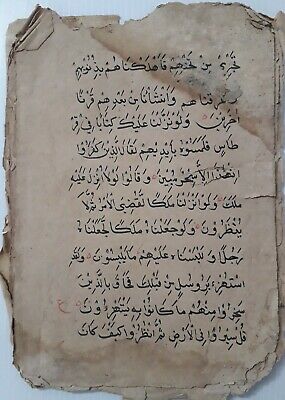 تَجْرِي مِنْ تَحْتِهِمْ فَأَهْلَكْنَاهُمْ بِذُنُوبِهِمْ
وَأَنْشَأْنَا مِنْ بَعْدِهِمْ قَرْنًا
آخَرِينَ وَلَوْ نَزَّلْنَا عَلَيْكَ كِتَابًا فِي قِرْ
طَاسٍ فَلَمَسُوهُ بِأَيْدِيهِمْ لَقَالَ الَّذِينَ كَفَرُوا
إِنْ هَذَا إِلَّا سِحْرٌ مُبِينٌ وَقَالُوا لَوْلَا أُنْزِلَ عَلَيْهِ
مَلَكٌ وَلَوْ أَنْزَلْنَا مَلَكًا لَقُضِيَ الْأَمْرُ ثُمَّ لَا
يُنْظَرُونَ وَلَوْ جَعَلْنَاهُ مَلَكًا لَجَعَلْنَاهُ
رَجُلًا وَلَلَبَسْنَا عَلَيْهِمْ مَا يَلْبِسُونَ وَلَقَدِ
اسْتُهْزِئَ بِرُسُلٍ مِنْ قَبْلِكَ فَحَاقَ بِالَّذِينَ
سَخِرُوا مِنْهُمْ مَا كَانُوا بِهِ يَسْتَهْزِءُونَ ع
قُلْ سِيرُوا فِي الْأَرْضِ ثُمَّ انْظُرُوا كَيْفَ كَانَ